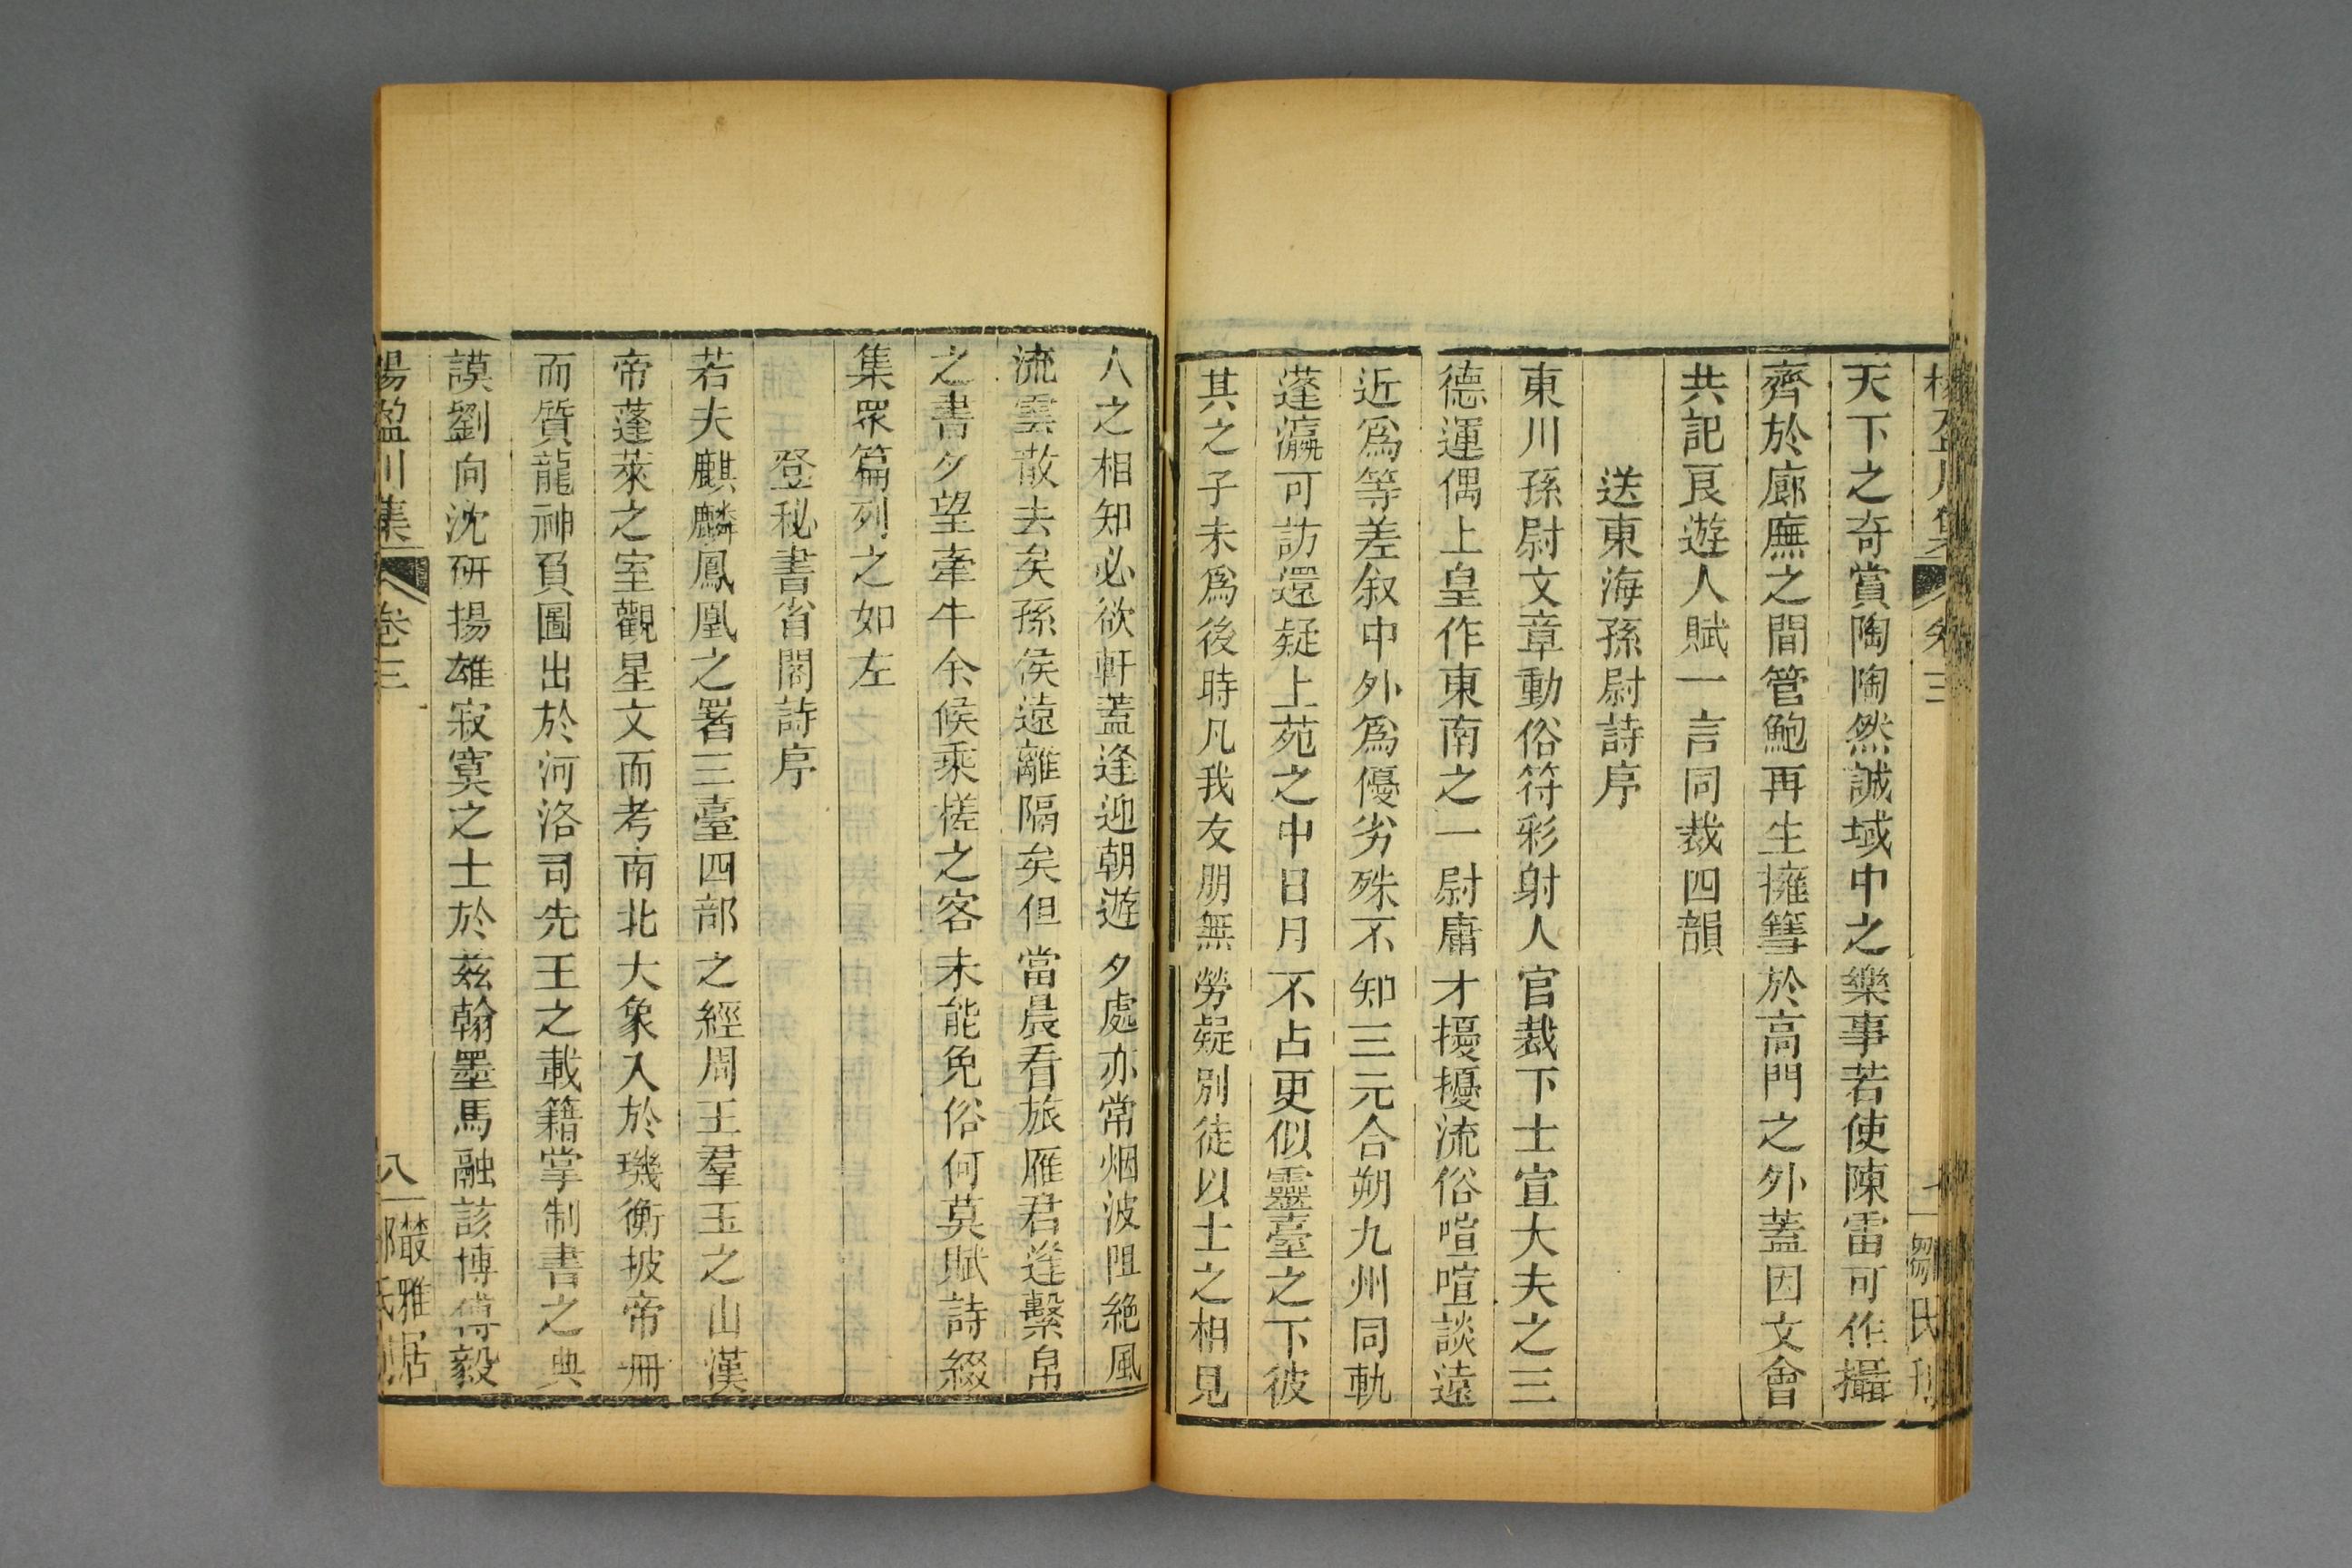 天下之奇賞陶陶然誠域中之樂事若使陳雷可作攝
齊於廊廡之間管鮑再生擁篲於高門之外蓋因文會
共記良遊人賦一言同裁四韻
送東海孫尉詩序
東川孫尉文章動俗符彩射人官裁下士宣大夫之三
德運偶上皇作東南之一尉庸才擾擾流俗喧喧談遠
近爲等差叙中外爲優劣殊不知三元合朔九州同軌
蓬瀛可訪還疑上苑之中日月不占更似靈臺之下彼
其之子未爲後時凡我友朋無勞疑別徒以士之相見
人之相知必欲軒蓋逢迎朝遊夕處亦常烟波阻絶風
流雲散去矣孫侯遠離隔矣但當晨看旅雁君逢繫帛
之書夕望牽牛余候乘槎之客未能免俗何莫賦詩綴
集眾篇列之如左
登秘書省閣詩序
若夫麒麟鳳凰之署三臺四部之經周王羣玉之山漢
帝蓬萊之室觀星文而考南北大象入於璣衡披帝冊
而質龍神負圖出於河洛司先王之載籍掌制書之典
謨劉向沈研揚雄寂寞之士於茲翰墨馬融該博傅毅
楊盈川集 卷三 八 叢雅居